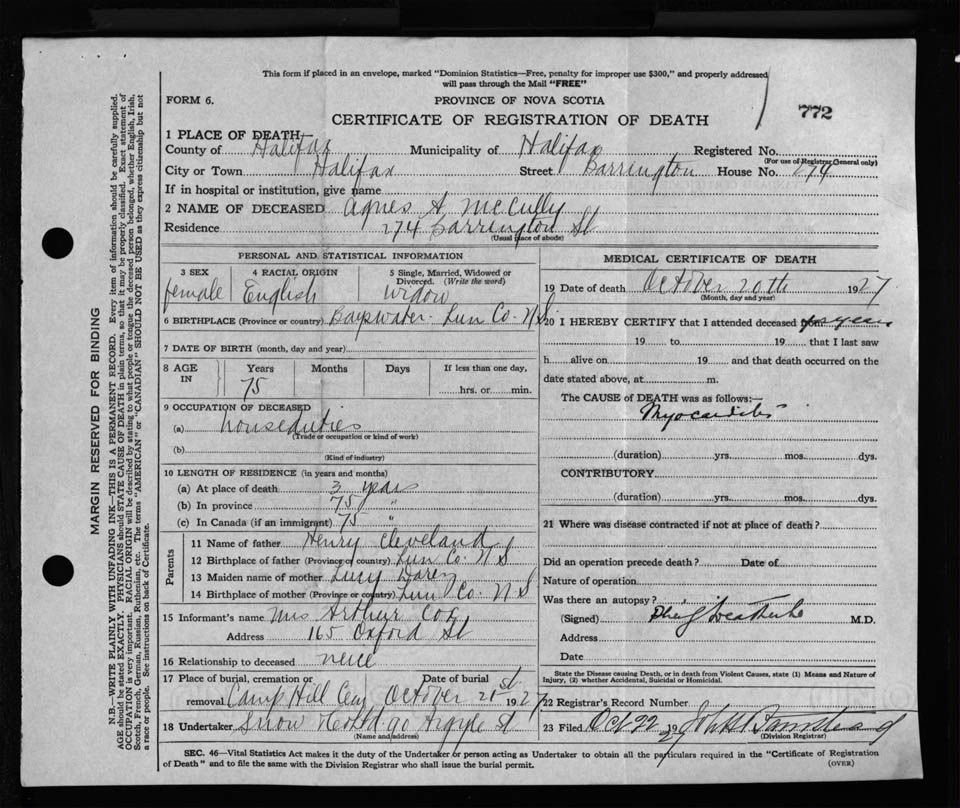 This form if placed in an envelope, marked "Dominion Statistics—Free, penalty for improper use $300," and properly addressed
will pass through the Mail "FREE"
FORM 6.
PROVINCE OF NOVA SCOTIA
772
CERTIFICATE OF REGISTRATION OF DEATH
1 PLACE OF DEATH
County of Halifax Municipality of Halifax Registered No.
(For use of Registrar General only)
City or Town Halifax Street Barrington House No. 274
If in hospital or institution, give name
2 NAME OF DECEASED Agnes A. McCully
Residence 274 Barrington St
(Usual place of abode)
PERSONAL AND STATISTICAL INFORMATION
3 SEX 4 RACIAL ORIGIN 5 Single, Married, Widowed or
Divorced. (Write the word)
female English widow
6 BIRTHPLACE (Province or country) Bayswater Lun Co. N S.
7 DATE OF BIRTH (month, day and year)
8 AGE IN Years Months Days If less than one day,
75 hrs. or min.
9 OCCUPATION OF DECEASED
(a) houseduties
(Trade or occupation or kind of work)
(b)
(Kind of industry)
10 LENGTH OF RESIDENCE (in years and months)
(a) At place of death 3 years
(b) In province 75 "
(c) In Canada (if an immigrant) 75 "
Parents
11 Name of father Henry Cleveland
12 Birthplace of father (Province or country) Lun Co. N S
13 Maiden name of mother Lucy
14 Birthplace of mother (Province or country) Lun Co. N S
15 Informant's name Mrs Arthur Cox
Address 165 Oxford St
16 Relationship to deceased neice
17 Place of burial, cremation or Date of burial
removal Camp Hill Cey October 21st 1927
18 Undertaker Snow 90 Argyle St
(Name and address)
MEDICAL CERTIFICATE OF DEATH
19 Date of death October 20th 1927
(Month, day and year)
20 I HEREBY CERTIFY that I attended deceased from years
19 to 19 that I last saw
h alive on 19 and that death occurred on the
date stated above, at m.
The CAUSE of DEATH was as follows:—
Myocarditis
(duration) yrs. mos. dys.
CONTRIBUTORY
(duration) yrs. mos. dys.
21 Where was disease contracted if not at place of death?
Did an operation precede death? Date of
Nature of operation
Was there an autopsy?
(Signed) M.D.
Address
Date
State the Disease causing Death, or in death from Violent Causes, state (1) Means and Nature of
Injury, (2) whether Accidental, Suicidal or Homicidal.
22 Registrar's Record Number
23 Filed Oct 22 1927
(Division Registrar)
SEC. 46—Vital Statistics Act makes it the duty of the Undertaker or person acting as Undertaker to obtain all the particulars required in the "Certificate of Registration
of Death" and to file the same with the Division Registrar who shall issue the burial permit.
(OVER)
MARGIN RESERVED FOR BINDING
N.B.—WRITE PLAINLY WITH UNFADING INK—THIS IS A PERMANENT RECORD. Every item of information should be carefully supplied.
AGE should be stated EXACTLY. PHYSICIANS should STATE CAUSE OF DEATH in plain terms, so that it may be properly classified. Exact statement of
OCCUPATION is very important. RACIAL ORIGIN will be described by stating to what people or tongue the deceased person belonged, whether English, Irish,
Scotch, French, German, Russian, Ruthenian, etc. The terms "AMERICAN" or "CANADIAN" SHOULD NOT BE USED as they express citizenship but not
a race or people. See instructions on back of Certificate.